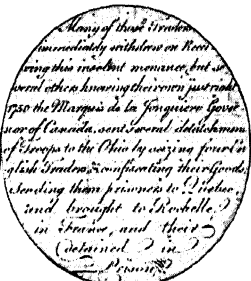 Many of these Traders
immediately withdrew on Recei
ving this insolent menance, but se
veral others knowing their own just right
1750 the Marquis de la Jonquiere Gover
nor of Canada, sent several detatchmen
of Troops to the Ohio by seizing four En
glish Traders & confiscating their Goods
Sending them prisoners to Quebec,
and brought to Rochelle
in France, and their
detained in
Prison